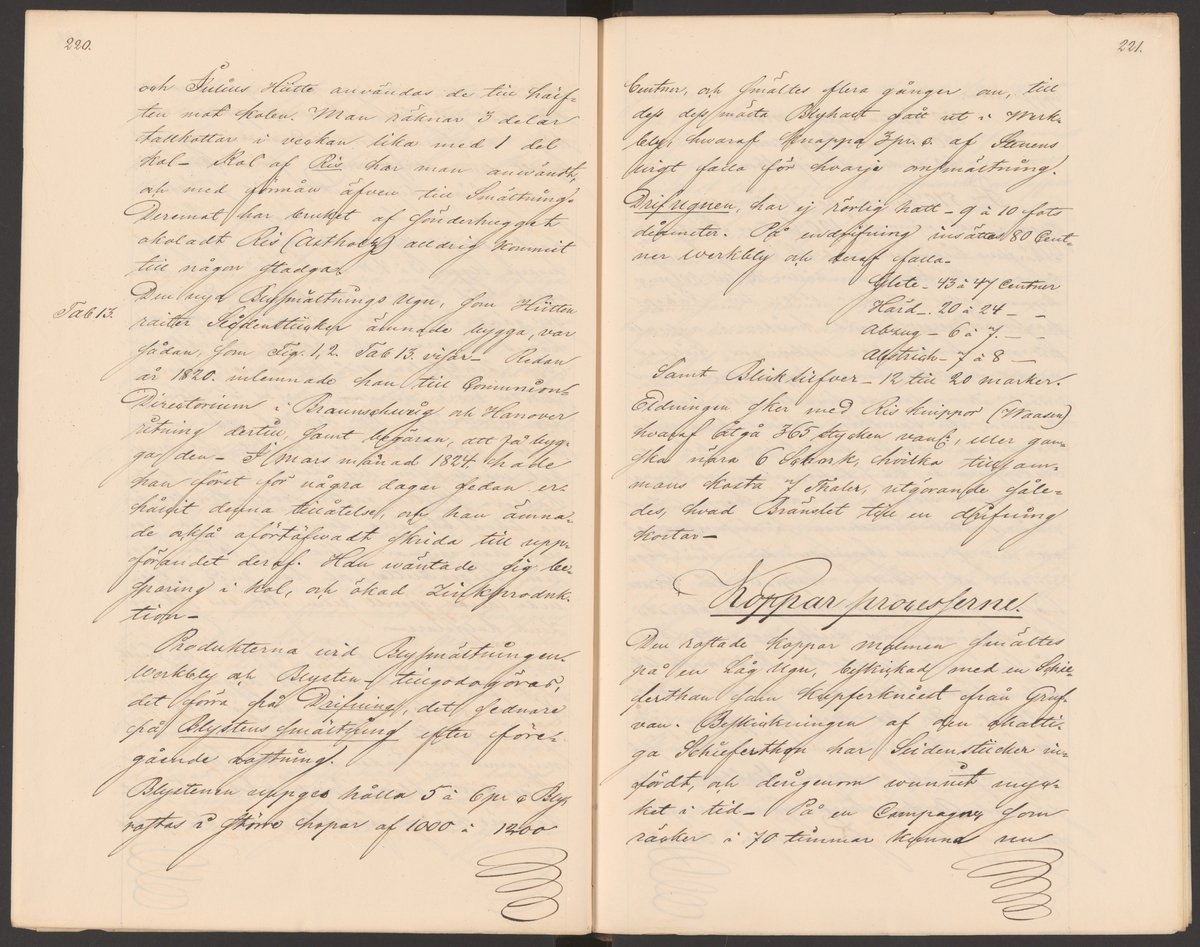 220.
och Julius Hütte användas de till hälf-
ten mot kolen. Man räknar 3 delar
tallkottar i verkan lika med 1 del
kol – Kol af Ris har man användt,
och med förmån äfven till Smältning.
Deremot har bruket af sönderhugget
okoladt Ris (Astholz) aldrig kommit
till någon stadga.
Tab 13.
Den nya Blysmältnings Ugn, som Hütten
raiter Seidenstücker ämnade bygga, var
sådan, som Fig. 1, 2. Tab 13. visar – Redan
år 1820. inlemnade han till Communions
Directorium i Braunschweig och Hanover
ritning dertill, samt begäran, att få byg-
ga den – I Mars månad 1824 hade
han först för några dagar sedan er-
hållit denna tillåtelse, och han ämna-
de också oförtöfwadt skrida till upp-
förandet deraf. Han wäntade sig be-
sparing i kol, och ökad Zinkproduk-
tion –
Produkterna vid Blysmältningen.
Werkbly och Blysten tillgodogöras,
det förra på Drifning, det sednare
på Blystens smältning efter före-
gående rostning.
Blystenen uppges hålla 5 à 6 pr c Bly,
rostas i större hopar af 1000 à 1200
221.
Centner, och smältes flera gånger om, till
dess dess mästa Blyhalt gått ut i Werk-
bly, hwaraf knappt 3 pr c. af Stenens
wigt falla för hvarje omsmältning.
Drifugnen, har ej rörlig hatt – 9 à 10 fots
diameter. På en drifning insättes 80 Cent-
ner Werkbly och deraf falla –
Glete – 43 à 47 Centner
Härd –. 20 à 24 – –
Abzug – 6 à 7. – –
Abstrich – 7 à 8 –
Samt Blicksilfver – 12 till 20 marker.
Eldningen sker med Risknippor (Waasen)
hwaraf åtgå 365 stycken vanl., eller gan-
ska nära 6 Schock, hvilka tillsam-
mans kosta 7 Thaler, utgörande såle-
des, hvad Bränslet till en drifning
kostar –
Kopparprocesserne.
Den rostade Koppar malmen smältes
på en Låg Ugn, beskickad med en Schie-
ferthon samt Kupferkniest från Gruf-
van. Beskickningen af den kalkti-
ga Schieferthon har Seidenstücker in-
fördt, och derigenom wunnit myc-
ket i tid – På en Campagne som
räcker i 70 timmar kunna nu